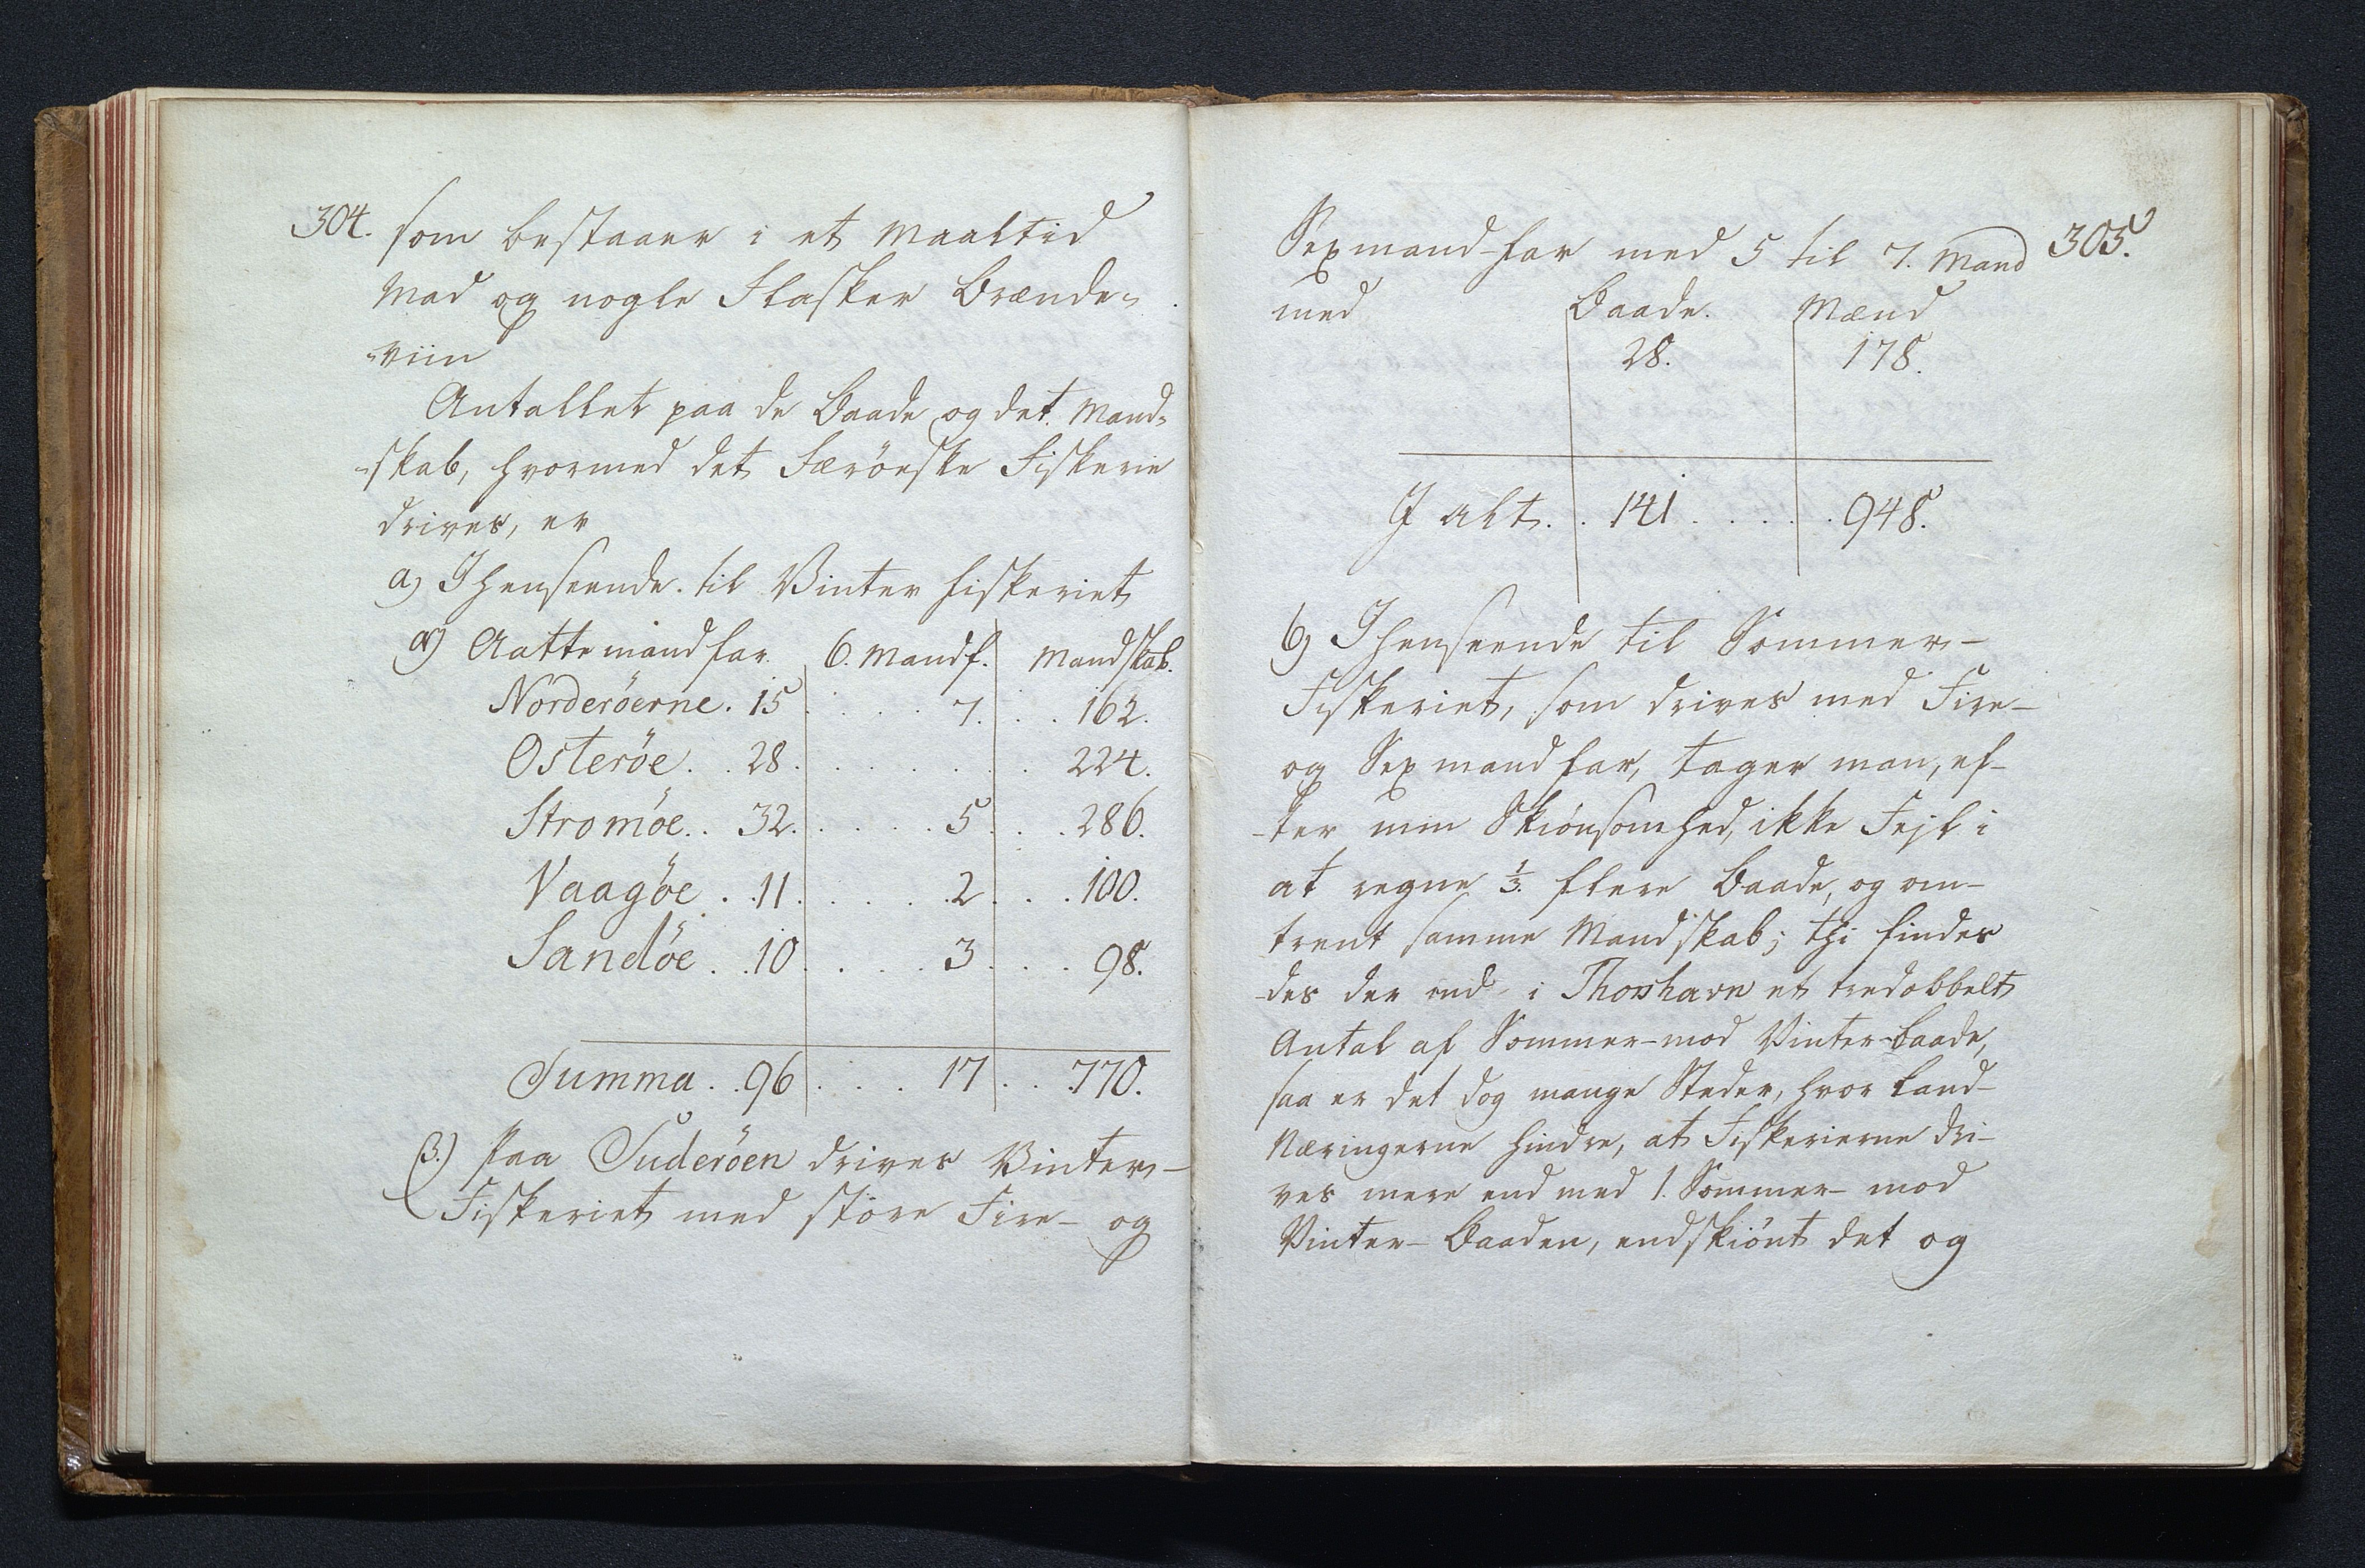 304. som bestaaer i et Maaltid
Mad og nogle Flasker Brænde=
=viin
Antallet paa de Baade og det Mand=
=skab, hvormed det Færöeske Fiskerie
drives, er
a) I henseende til Vinter fiskeriet
α) Aattemandfar 6. Mandf. Mandskab.
Norderöerne. 15 . . . . 7. . . 162.
Osteröe. . 28. . . . . . . . 224.
Stromöe. . 32. . . . . . 5 . . . 286.
Vaagöe . . 11. . . . . . 2 . . . 100.
Sandöe . . 10 . . . . 3 . . . 98.
Summa . . 96 . . . 17 . . 770.
β.) Paa Suderöen drives Vinter-
Fiskeriet med störe Fire- og
Sexmand-far med 5 til 7. Mand 305.
med Baade. Mænd
28. 178.
I alt. . 141 . . . . . 948.
b) I henseende til Sommer-
Fiskeriet, som drives med Fire-
og Sexmandfar, tager man, ef-
-ter min Skiönsomhed, ikke Fejl i
at regne 1/3. flere Baade, og om-
trent samme Mandskab; thi findes
-des der end i Thorshavn et tredobbelt
Antal af Sommer-mod Vinter-baade,
saa er det dog mange Steder, hvor Land-
Næringerne hindre, at Fiskerierne dri-
ves mere end med 1. Sommer- mod
Vinter-Baaden, endskiönt det og